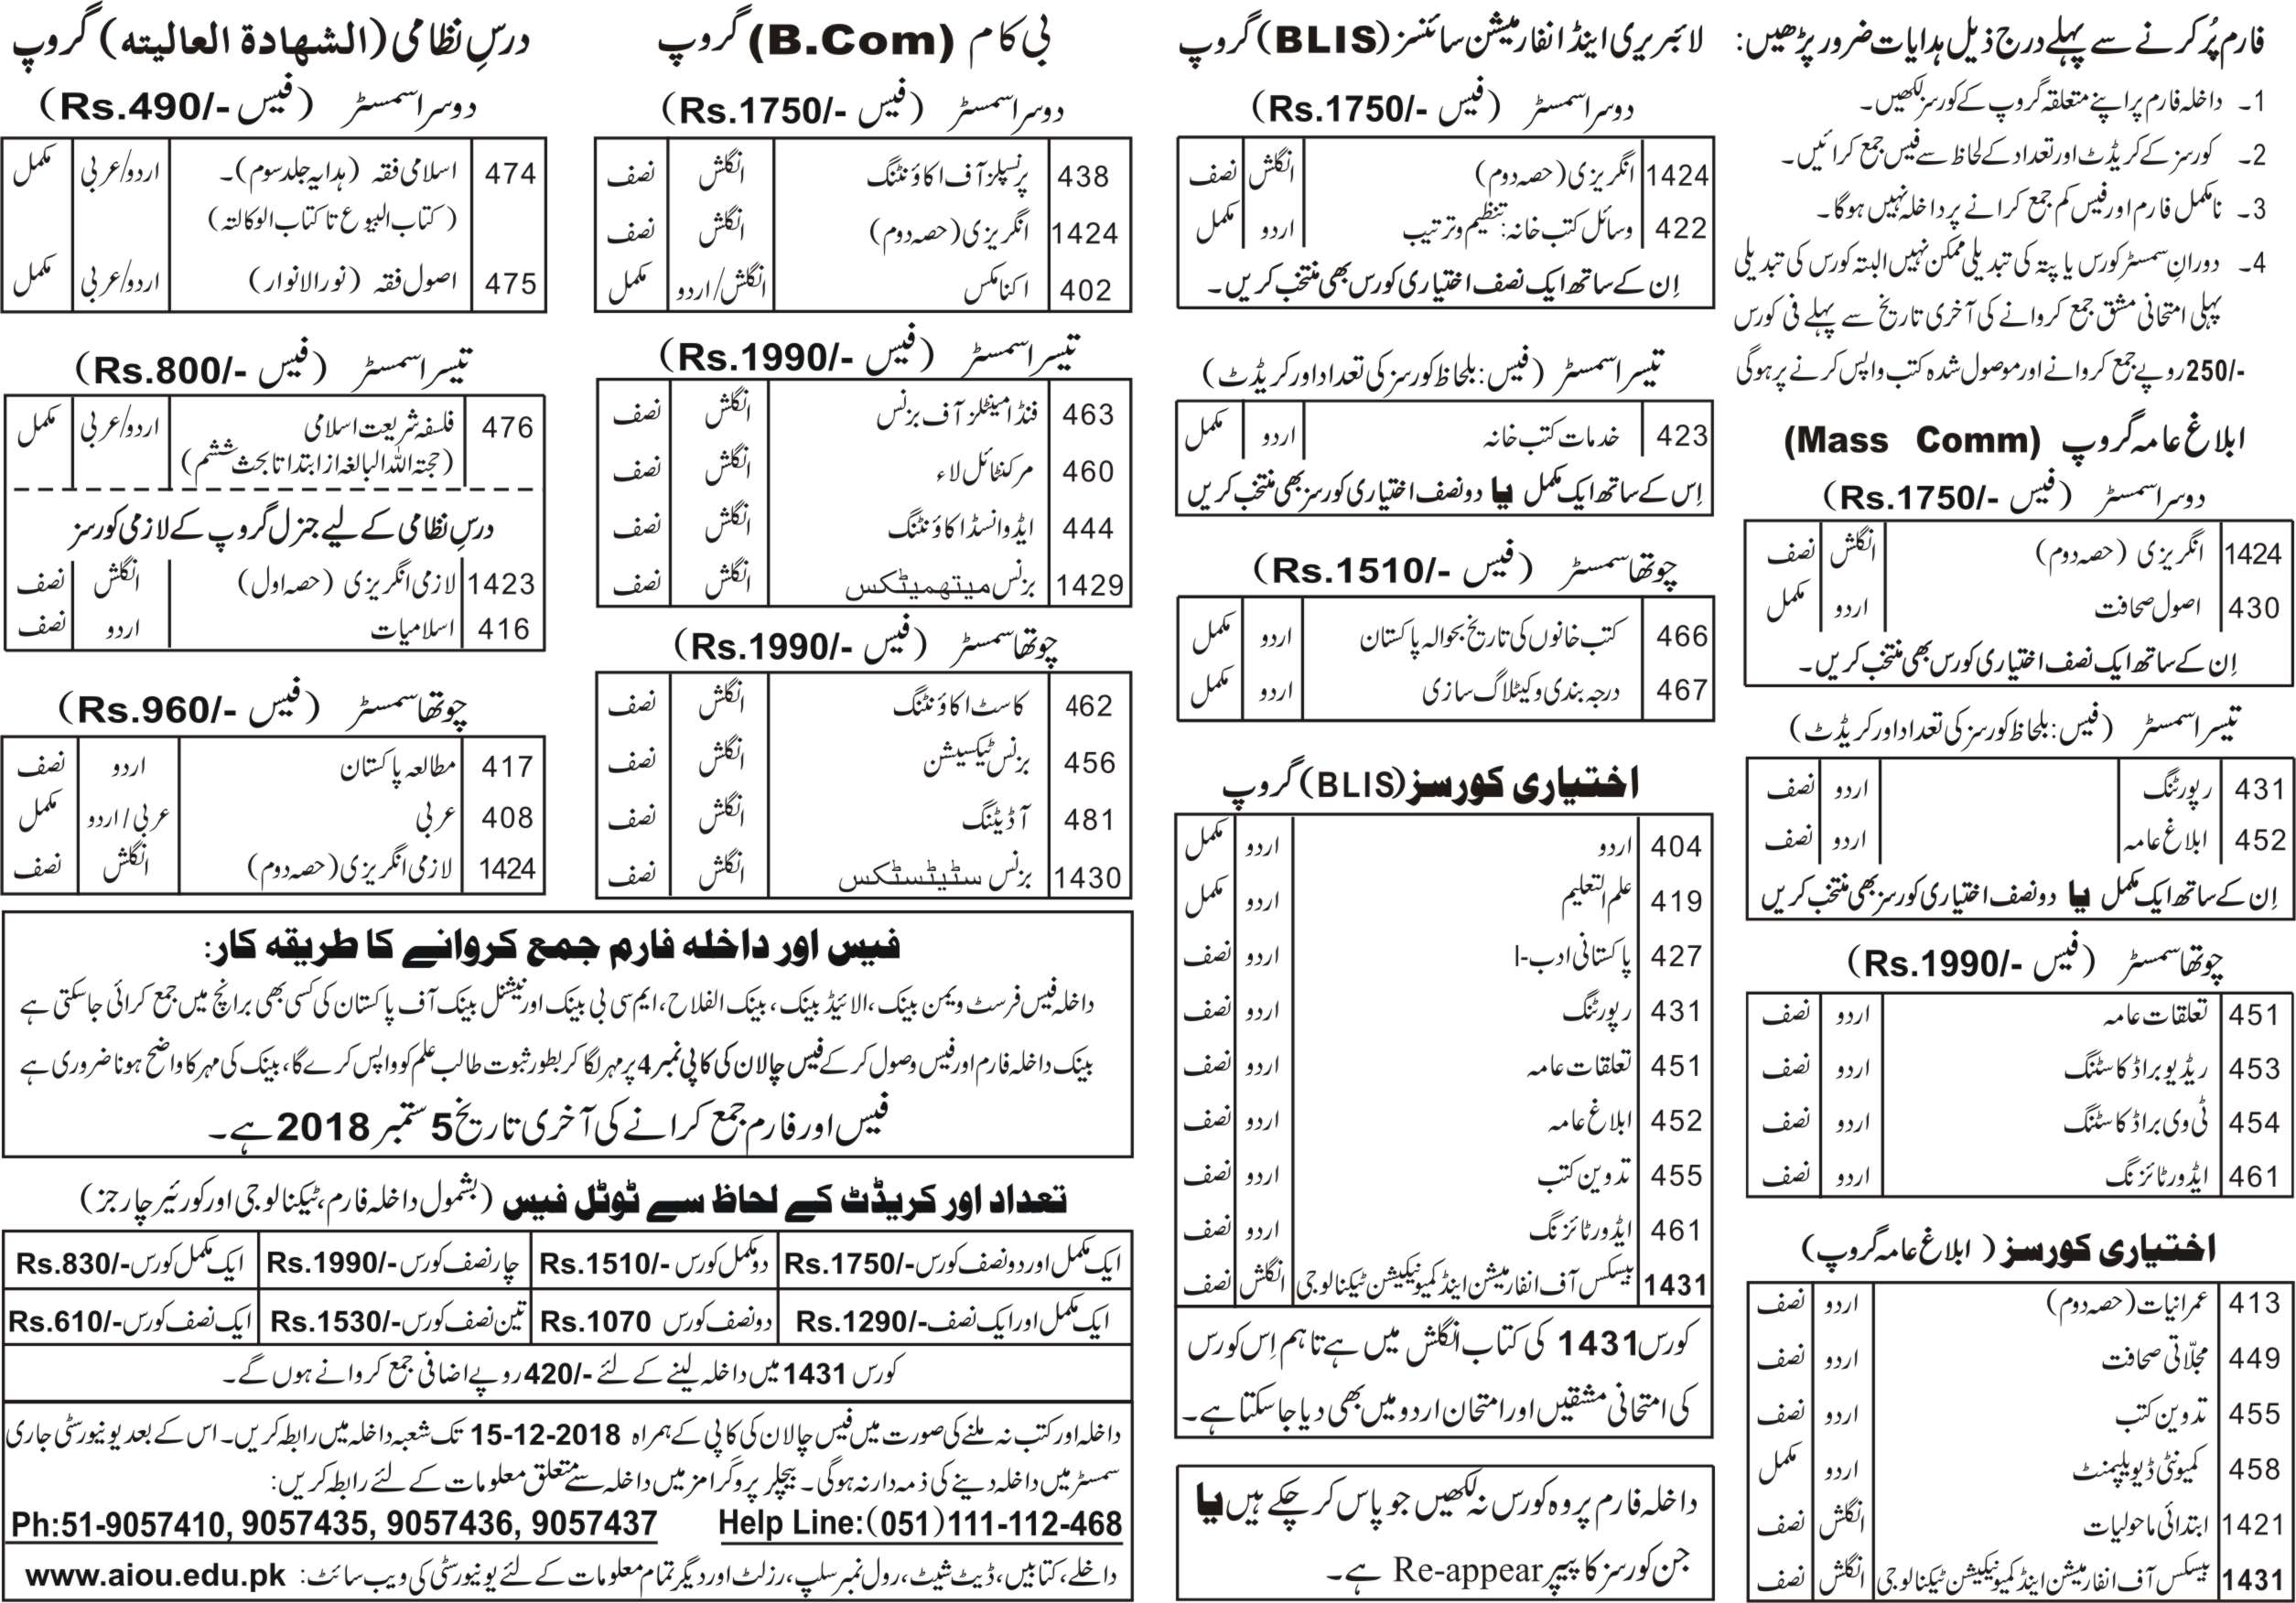 فارم پُر کرنے سے پہلے درج ذیل ہدایات ضرور پڑھیں:
1۔ داخلہ فارم پر اپنے متعلقہ گروپ کے کورسز لکھیں۔
2۔ کورسز کے کریڈٹ اور تعداد کے لحاظ سے فیس جمع کرائیں۔
3۔ نامکمل فارم اور فیس کم جمع کرانے پر داخلہ نہیں ہوگا۔
4۔ دورانِ سمسٹر کورس یا پتہ کی تبدیلی ممکن نہیں البتہ کورس کی تبدیلی
پہلی امتحانی مشق جمع کروانے کی آخری تاریخ سے پہلے فی کورس
250/- روپے جمع کروانے اور موصول شدہ کتب واپس کرنے پر ہوگی
ابلاغ عامہ گروپ (Mass Comm)
دوسرا سمسٹر (فیس Rs.1750/-)
1424 انگریزی (حصہ دوم) انگلش نصف
430 اصول صحافت اردو مکمل
اِن کے ساتھ ایک نصف اختیاری کورس بھی منتخب کریں۔
تیسرا سمسٹر (فیس: بلحاظ کورسز کی تعداد اور کریڈٹ)
431 رپورٹنگ اردو نصف
452 ابلاغ عامہ اردو نصف
اِن کے ساتھ ایک مکمل یا دو نصف اختیاری کورسز بھی منتخب کریں
چوتھا سمسٹر (فیس Rs.1990/-)
451 تعلقات عامہ اردو نصف
453 ریڈیو براڈ کاسٹنگ اردو نصف
454 ٹی وی براڈ کاسٹنگ اردو نصف
461 ایڈورٹائزنگ اردو نصف
اختیاری کورسز (ابلاغ عامہ گروپ)
413 عمرانیات (حصہ دوم) اردو نصف
449 مجلّاتی صحافت اردو نصف
455 تدوین کتب اردو نصف
458 کمیونٹی ڈیویلپمنٹ اردو مکمل
1421 ابتدائی ماحولیات انگلش نصف
1431 بیسکس آف انفارمیشن اینڈ کمیونیکیشن ٹیکنالوجی انگلش نصف
لائبریری اینڈ انفارمیشن سائنسز (BLIS) گروپ
دوسرا سمسٹر (فیس Rs.1750/-)
1424 انگریزی (حصہ دوم) انگلش نصف
422 وسائل کتب خانہ: تنظیم و ترتیب اردو مکمل
اِن کے ساتھ ایک نصف اختیاری کورس بھی منتخب کریں۔
تیسرا سمسٹر (فیس: بلحاظ کورسز کی تعداد اور کریڈٹ)
423 خدمات کتب خانہ اردو مکمل
اِس کے ساتھ ایک مکمل یا دو نصف اختیاری کورسز بھی منتخب کریں
چوتھا سمسٹر (فیس Rs.1510/-)
466 کتب خانوں کی تاریخ بحوالہ پاکستان اردو مکمل
467 درجہ بندی و کیٹلاگ سازی اردو مکمل
اختیاری کورسز (BLIS) گروپ
404 اردو اردو مکمل
419 علم التعلیم اردو مکمل
427 پاکستانی ادب-I اردو نصف
431 رپورٹنگ اردو نصف
451 تعلقات عامہ اردو نصف
452 ابلاغ عامہ اردو نصف
455 تدوین کتب اردو نصف
461 ایڈورٹائزنگ اردو نصف
1431 بیسکس آف انفارمیشن اینڈ کمیونیکیشن ٹیکنالوجی انگلش نصف
کورس 1431 کی کتاب انگلش میں ہے تاہم اِس کورس
کی امتحانی مشقیں اور امتحان اردو میں بھی دیا جا سکتا ہے۔
داخلہ فارم پر وہ کورس نہ لکھیں جو پاس کر چکے ہیں یا
جن کورسز کا پیپر Re-appear ہے۔
بی کام (B.Com) گروپ
دوسرا سمسٹر (فیس Rs.1750/-)
438 پرنسپلز آف اکاؤنٹنگ انگلش نصف
1424 انگریزی (حصہ دوم) انگلش نصف
402 اکنامکس انگلش/اردو مکمل
تیسرا سمسٹر (فیس Rs.1990/-)
463 فنڈامینٹلز آف بزنس انگلش نصف
460 مرکنٹائل لاء انگلش نصف
444 ایڈوانسڈ اکاؤنٹنگ انگلش نصف
1429 بزنس میتھمیٹکس انگلش نصف
چوتھا سمسٹر (فیس Rs.1990/-)
462 کاسٹ اکاؤنٹنگ انگلش نصف
456 بزنس ٹیکسیشن انگلش نصف
481 آڈیٹنگ انگلش نصف
1430 بزنس سٹیٹسٹکس انگلش نصف
درسِ نظامی (الشهادة العاليته) گروپ
دوسرا سمسٹر (فیس Rs.490/-)
474 اسلامی فقہ (ہدایہ جلد سوم)۔ اردو/عربی مکمل
(کتاب البیوع تا کتاب الوکالتہ)
475 اصول فقہ (نورالانوار) اردو/عربی مکمل
تیسرا سمسٹر (فیس Rs.800/-)
476 فلسفہ شریعت اسلامی اردو/عربی مکمل
(حجتہ اللہ البالغہ از ابتدا تا بحث ششم)
درسِ نظامی کے لیے جنرل گروپ کے لازمی کورسز
1423 لازمی انگریزی (حصہ اول) انگلش نصف
416 اسلامیات اردو نصف
چوتھا سمسٹر (فیس Rs.960/-)
417 مطالعہ پاکستان اردو نصف
408 عربی عربی/اردو مکمل
1424 لازمی انگریزی (حصہ دوم) انگلش نصف
فیس اور داخلہ فارم جمع کروانے کا طریقہ کار:
داخلہ فیس فرسٹ ویمن بینک، الائیڈ بینک، بینک الفلاح، ایم سی بی بینک اور نیشنل بینک آف پاکستان کی کسی بھی برانچ میں جمع کرائی جا سکتی ہے
بینک داخلہ فارم اور فیس وصول کر کے فیس چالان کی کاپی نمبر 4 پر مہر لگا کر بطور ثبوت طالب علم کو واپس کرے گا، بینک کی مہر کا واضح ہونا ضروری ہے
فیس اور فارم جمع کرانے کی آخری تاریخ 5 ستمبر 2018 ہے۔
تعداد اور کریڈٹ کے لحاظ سے ٹوٹل فیس (بشمول داخلہ فارم، ٹیکنالوجی اور کورئیر چارجز)
ایک مکمل اور دو نصف کورس-/Rs.1750 دو مکمل کورس -/Rs.1510 چار نصف کورس-/Rs.1990 ایک مکمل کورس-/Rs.830
ایک مکمل اور ایک نصف-/Rs.1290 دو نصف کورس Rs.1070 تین نصف کورس-/Rs.1530 ایک نصف کورس-/Rs.610
کورس 1431 میں داخلہ لینے کے لئے -/420 روپے اضافی جمع کروانے ہوں گے۔
داخلہ اور کتب نہ ملنے کی صورت میں فیس چالان کی کاپی کے ہمراہ 15-12-2018 تک شعبہ داخلہ میں رابطہ کریں۔ اس کے بعد یونیورسٹی جاری
سمسٹر میں داخلہ دینے کی ذمہ دار نہ ہوگی۔ بیچلر پروگرامز میں داخلہ سے متعلق معلومات کے لئے رابطہ کریں:
Ph:51-9057410, 9057435, 9057436, 9057437 Help Line:(051)111-112-468
داخلے، کتابیں، ڈیٹ شیٹ، رول نمبر سلپ، رزلٹ اور دیگر تمام معلومات کے لئے یونیورسٹی کی ویب سائٹ: www.aiou.edu.pk